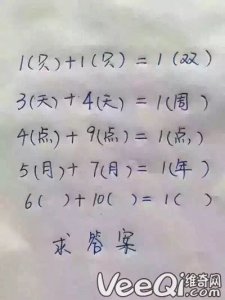 1(只)+1(只)=1(双)
3(天)+4(天)=1(周)
4(点)+9(点)=1(点)
5(月)+7(月)=1(年)
6( )+10( )=1( )
求答案
VeeQi维奇网